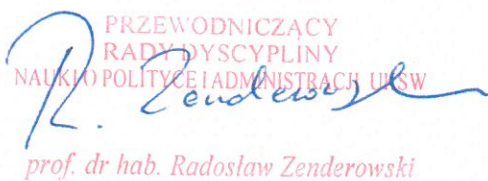 PRZEWODNICZĄCY
RADY DYSCYPLINY
NAUKI O POLITYCE I ADMINISTRACJI UKSW
R. Zenderowski
prof. dr hab. Radosław Zenderowski